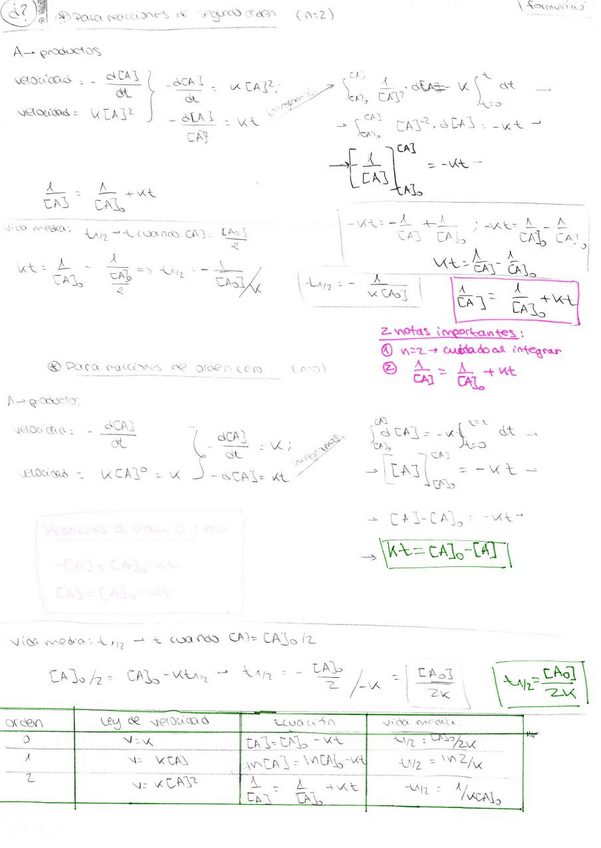 d? (*) Para reacciones de segundo orden (n=2)
formulario
A → productos
velocidad = - d[A]/dt
velocidad = K[A]²
-d[A]/dt = K[A]²;
-d[A]/[A]² = Kt
integramos
∫_[A]₀^[A] 1/[A]² · d[A] = -K ∫_t=0^t dt →
→ ∫_[A]₀^[A] [A]⁻² · d[A] = -Kt →
→ [-1/[A]]_[A]₀^[A] = -Kt →
1/[A] = 1/[A]₀ + Kt
-Kt = -1/[A] + 1/[A]₀ ; -Kt = 1/[A]₀ - 1/[A]
Kt = 1/[A] - 1/[A]₀
1/[A] = 1/[A]₀ + Kt
vida media: t1/2 → t cuando [A] = [A₀]/2
Kt = 1/[A]₀ - 1/[A]₀/2 => t1/2 = - 1/[A₀] / K
t1/2 = - 1/K[A₀]
2 notas importantes:
① n=2 → cuidado al integrar
② 1/[A] = 1/[A]₀ + Kt
(*) Para reacciones de orden cero (n=0)
A → productos
velocidad = - d[A]/dt
velocidad = K[A]⁰ = K
-d[A]/dt = K;
-d[A] = Kt
integramos
∫_[A]₀^[A] d[A] = -K ∫_t=0^t=t dt →
→ [[A]]_[A]₀^[A] = -Kt →
→ [A] - [A]₀ = -Kt →
→ Kt = [A]₀ - [A]
Reacciones de orden 0: n=0
-[A] + [A]₀ = Kt
[A] = [A]₀ - Kt
vida media: t1/2 → t cuando [A] = [A]₀/2
[A]₀/2 = [A]₀ - Kt1/2 → t1/2 = - [A]₀/2 / -K = [A₀]/2K
t1/2 = [A₀]/2K
orden Ley de velocidad Ecuación vida media
0 v=K [A]=[A]₀ - Kt t1/2 = [A]₀/2K
1 v= K[A] ln[A] = ln[A]₀ - Kt t1/2 = ln2/K
2 v= K[A]² 1/[A] = 1/[A]₀ + Kt t1/2 = 1/K[A]₀